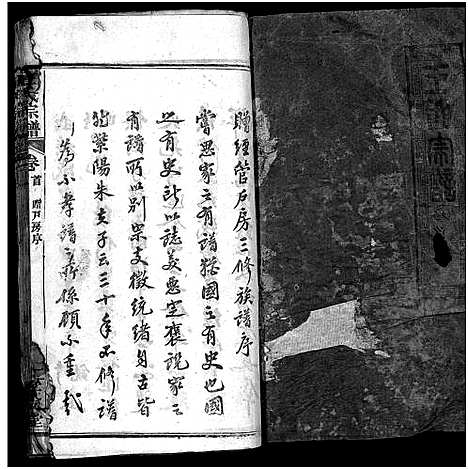 王氏宗譜
贈經管戶房三修族譜序
嘗思家之有譜猶國之有史也國
之有史所以誌美惡定褒說家之
有譜所以別宗支徵統緒自古皆
然紫陽朱夫子云三十年不修譜
為不孝譜之所係顧不重哉
氏宗譜
卷首
贈戶房序